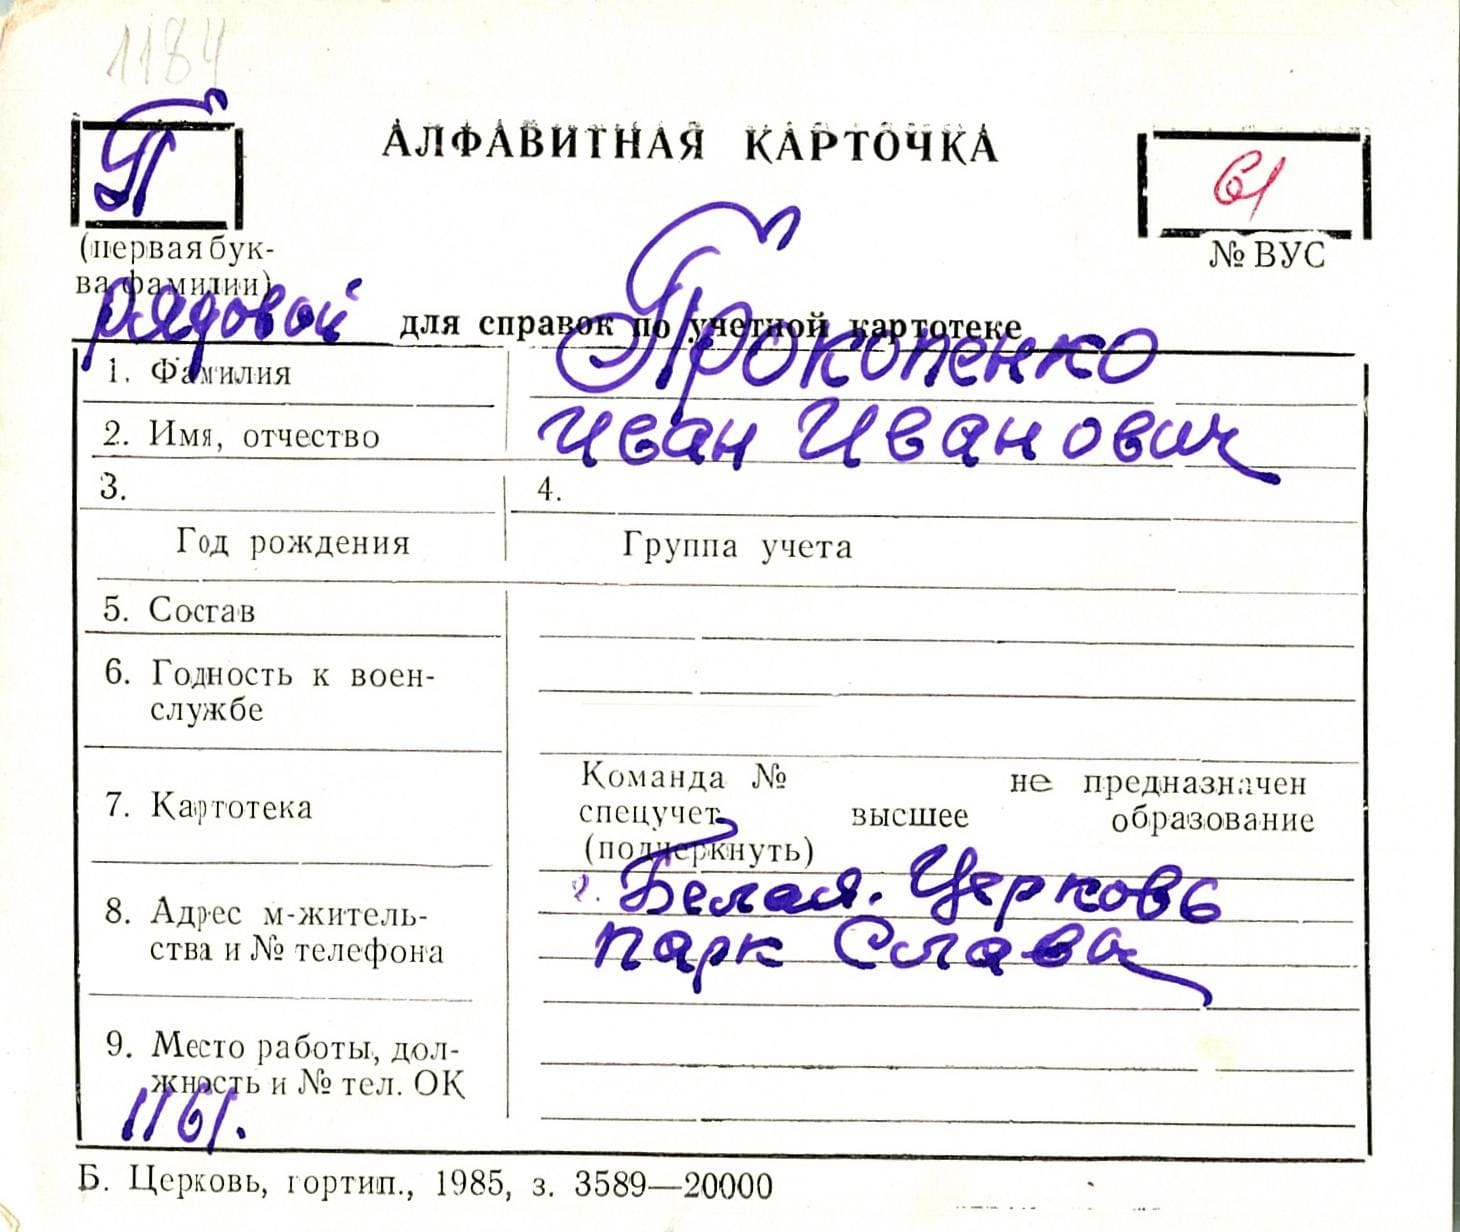 1184
П
АЛФАВИТНАЯ КАРТОЧКА
61
(первая бук-
ва фамилии)
№ ВУС
рядовой
для справок по учетной картотеке
1. Фамилия Прокопенко
2. Имя, отчество Иван Иванович
3. 4.
Год рождения Группа учета
5. Состав
6. Годность к воен-
службе
7. Картотека
Команда № не предназначен
спецучет высшее образование
(подчеркнуть)
8. Адрес м-житель-
ства и № телефона
г. Белая. Церковь
парк Слава
9. Место работы, дол-
жность и № тел. ОК
1161.
Б. Церковь, гортип., 1985, з. 3589—20000